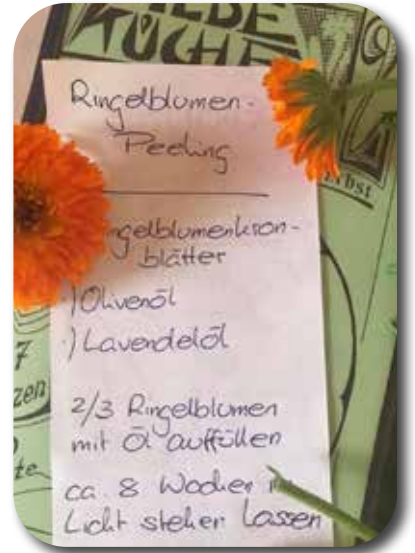 WILDE
KÜCHE
Ringelblumen-
Peeling
ngelblumenkron-
blätter
·) Olivenöl
·) Lavendelöl
2/3 Ringelblumen
mit Öl auffüllen
ca. 8 Wochen
Licht stehen lassen
7
zen
te
rbst